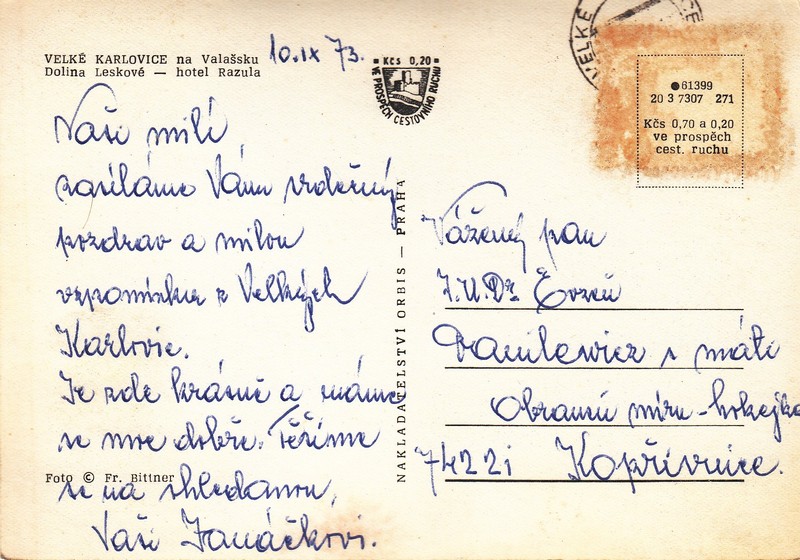 VELKÉ KARLOVICE na Valašsku
Dolina Leskové — hotel Razula
10.IX 73.
Kčs 0,20
VE PROSPĚCH CESTOVNÍHO RUCHU
VELKÉ
61399
20 3 7307 271
Kčs 0,70 a 0,20
ve prospěch
cest. ruchu
Naši milí
zasíláme Vám srdečný
pozdrav a milou
vzpomínku z Velkých
Karlovic.
Je zde krásně a máme
se moc dobře. Těšíme
se na shledanou,
Vaši Janáčkovi.
Foto © Fr. Bittner
NAKLADATELSTVÍ ORBIS — PRAHA
Vážený pan
J.U.Dr Evžen
Danilewicz s
Obránců míru-hokejka
74221 Kopřivnice.